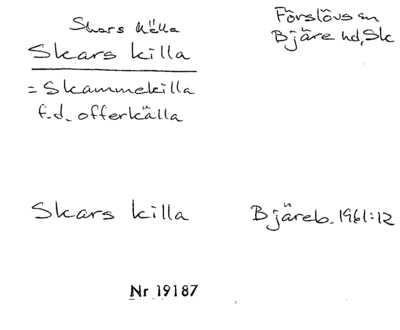 Skars källa
Förslövs sn
Skars killa
Bjäre hd, Sk
= Skammekilla
f.d. offerkälla
Skars killa
Bjäreb. 1961:12
Nr 19187